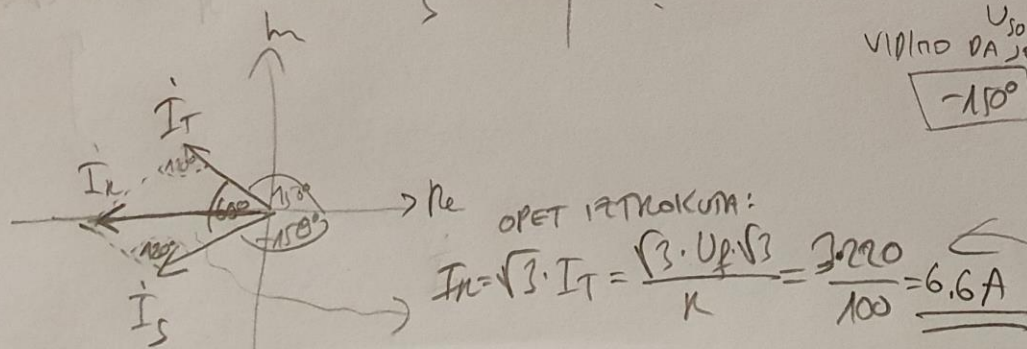 Im
U_S0
VIDIMO DA JE
-150°
İ_T
120°
İ_R
60°
150°
-150°
Re
120°
İ_S
OPET IZ TROKUTA:
I_R = √3 · I_T = √3 · U_f · √3 / R = 3·220 / 100 = 6,6 A